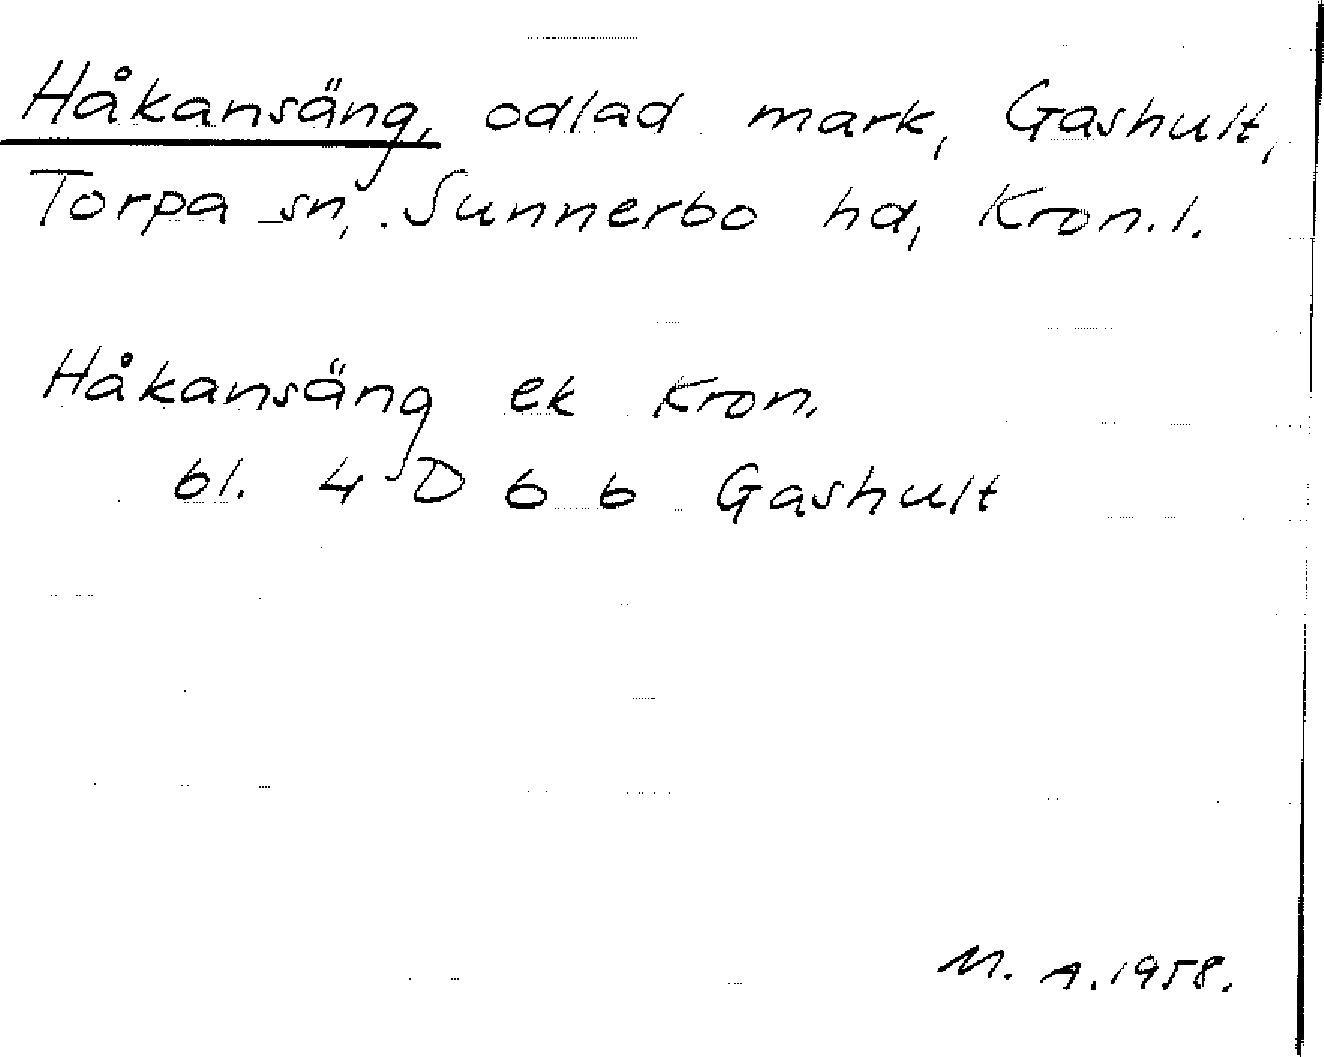 Håkansäng, odlad mark, Gashult,
Torpa sn, Sunnerbo hd, Kron.l.
Håkansäng ek Kron.
bl. 4 D 6 b Gashult
M. A. 1958.